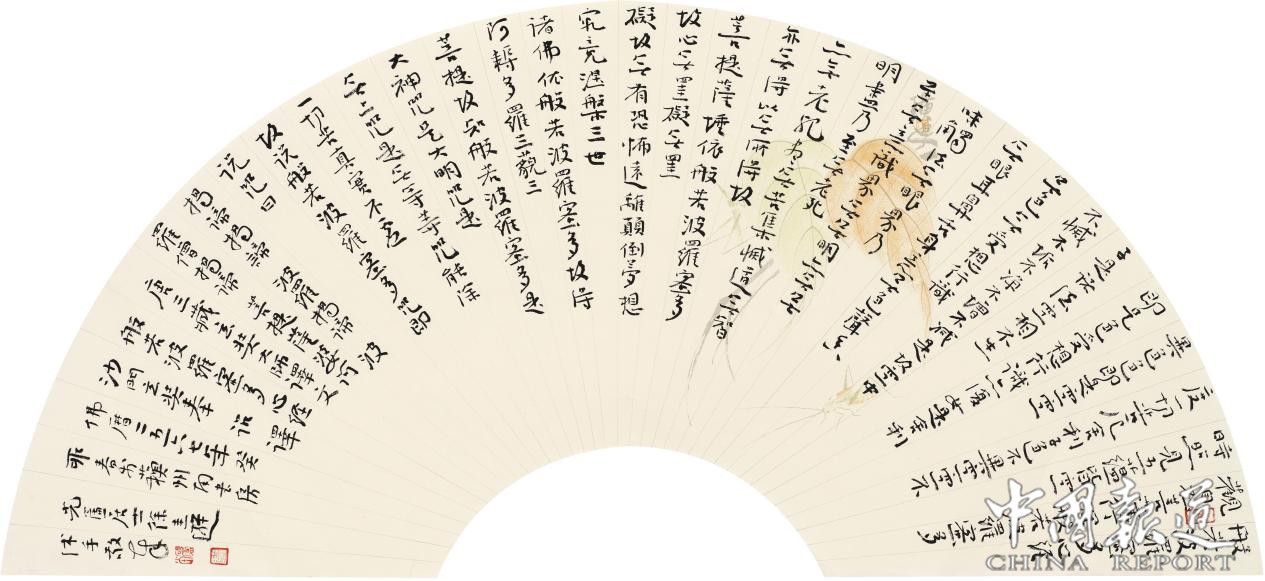 般若波羅蜜多心經
觀自在菩薩行深般若波羅蜜多
時照見五蘊皆空
度一切苦厄舍利子色不異空空不
異色色即是空空
即是色受想行識亦復如是舍利
子是諸法空相不生
不滅不垢不淨不增不減是故空中
無色無受想行識
無眼耳鼻舌身意無色聲香
味觸法無眼界乃
至無意識界無無明亦無無
明盡乃至無老死
亦無老死盡無苦集滅道無智
亦無得以無所得故
菩提薩埵依般若波羅蜜多
故心無罣礙無罣
礙故無有恐怖遠離顛倒夢想
究竟涅槃三世
諸佛依般若波羅蜜多故得
阿耨多羅三藐三
菩提故知般若波羅蜜多是
大神咒是大明咒是
無上咒是無等等咒能除
一切苦真實不虛
故說般若波羅蜜多咒即
說咒曰
揭諦揭諦波羅揭諦波
羅僧揭諦菩提薩婆訶
唐三藏玄奘大師譯文
般若波羅蜜多心經
沙門玄奘奉詔譯
佛曆二五六七年癸
卯春於州南書房
居士徐
沐手敬
中国报道
CHINA REPORT